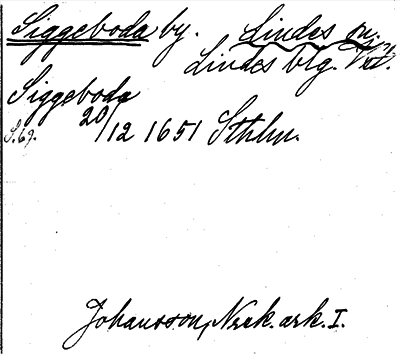 Siggeboda by. Lindes sn.
Lindes blg. Vstl.
Siggeboda
S. 69. 20/12 1651 Sthlm.
Johansson, Nerk. ark. I.